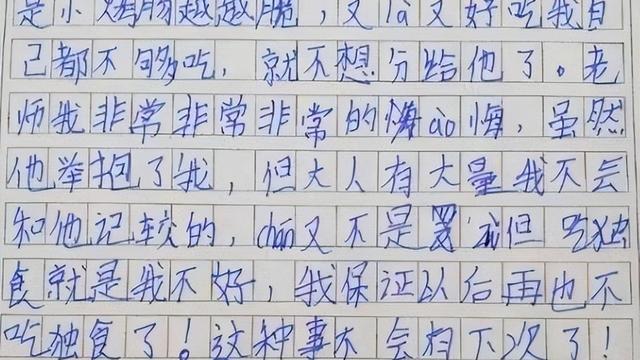 是小烤肠越越脆，又là又好吃我自
己都不够吃，就不想分给他了。老
师我非常非常非常的悔ào悔，虽然
他举抱了我，但大人有大量我不会
和他记较的，chán又不是罪 但 吃独
食就是我不好，我保证以后再也不
吃独食了！这种事不会有下次了！